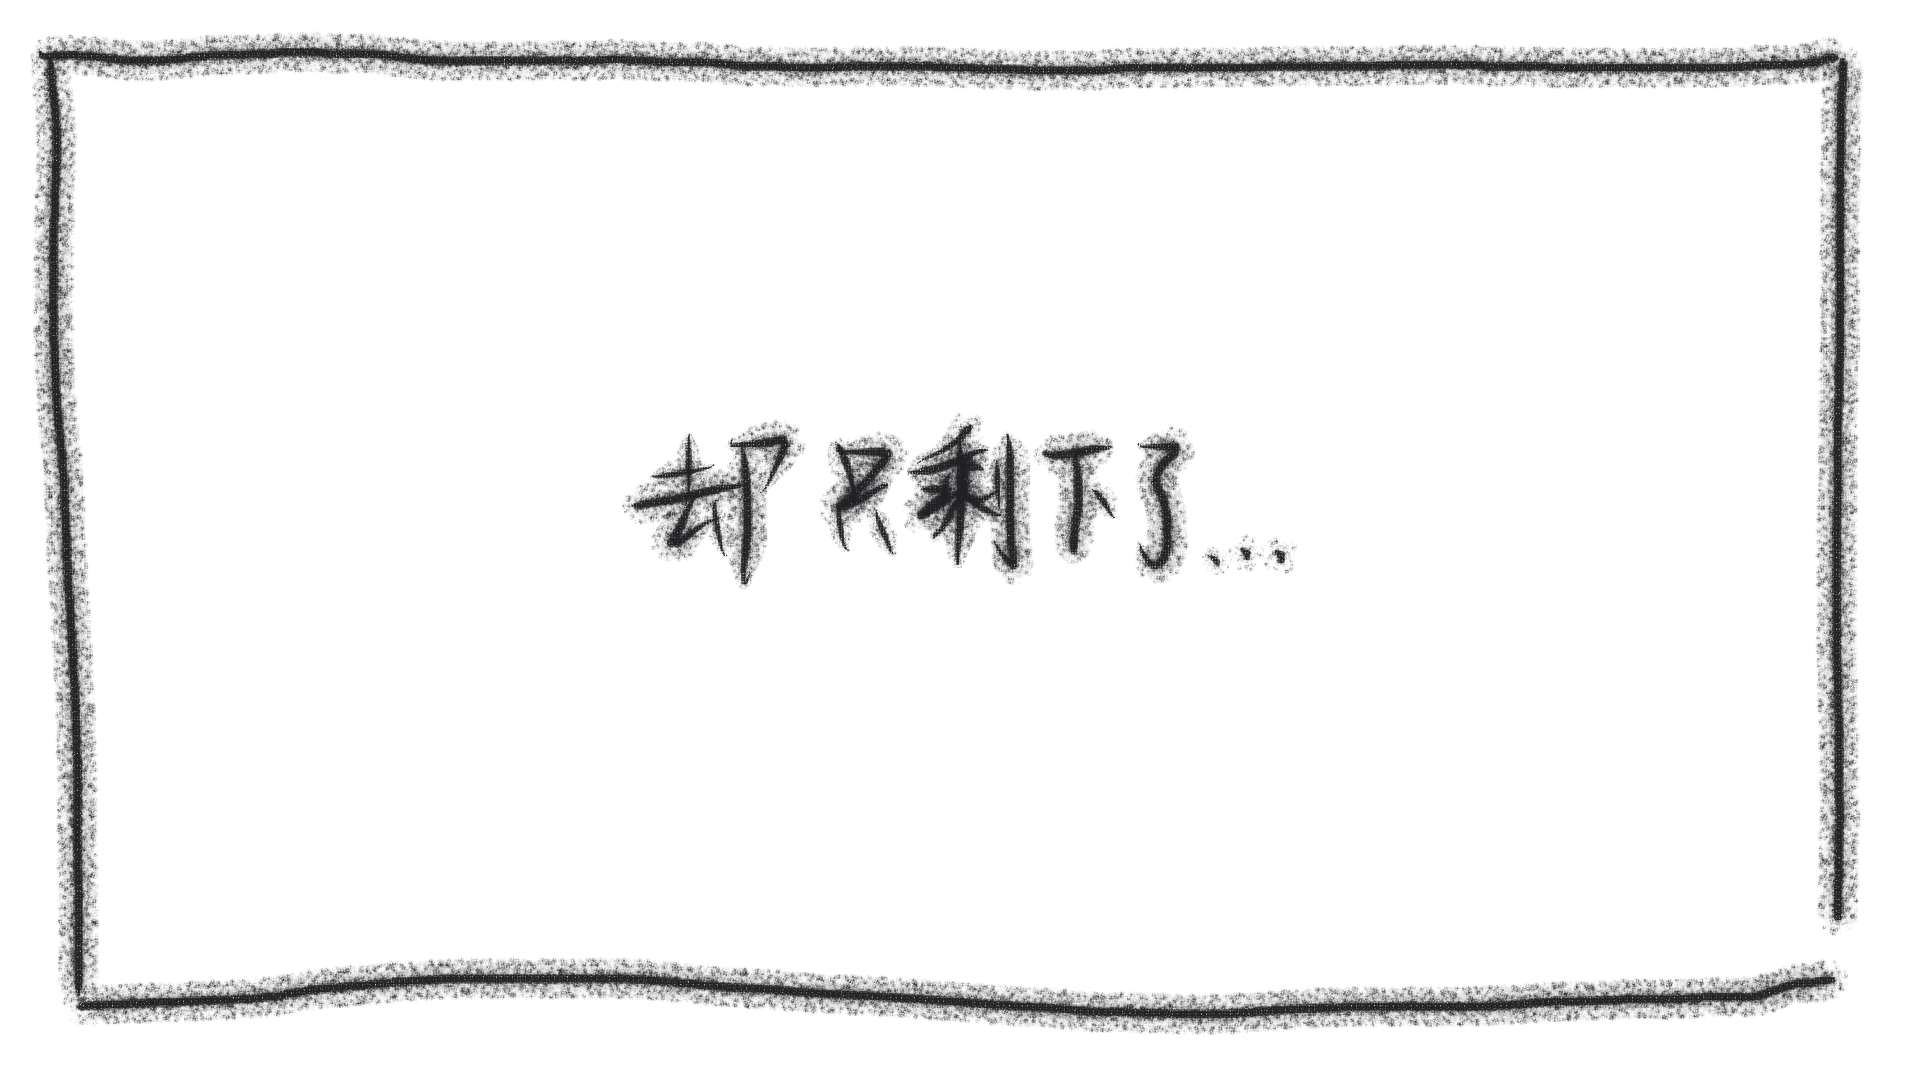 却只剩下了...